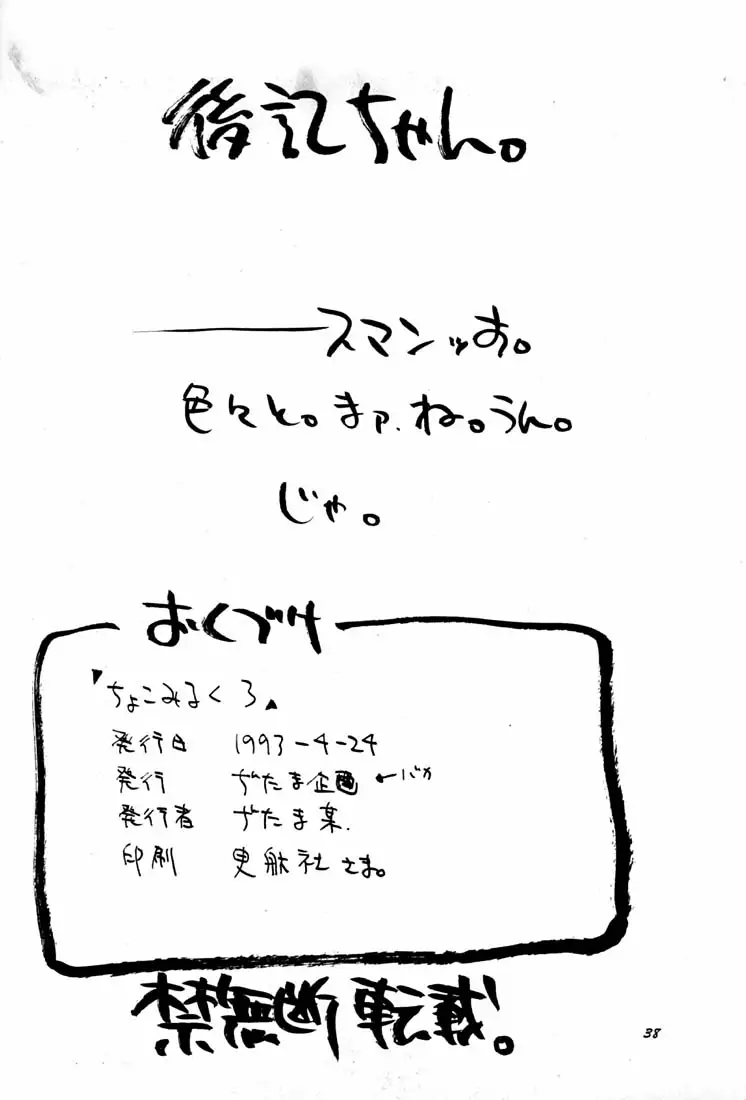 後記ちゃん。
――スマンッす。
色々と。まァ、ね。うん。
じゃ。
おくづけ
「ちょこみるく3」
発行日 1993-4-24
発行 ぢたま企画 ←バカ
発行者 ぢたま某.
印刷 更航社さま。
禁無断転載。
38